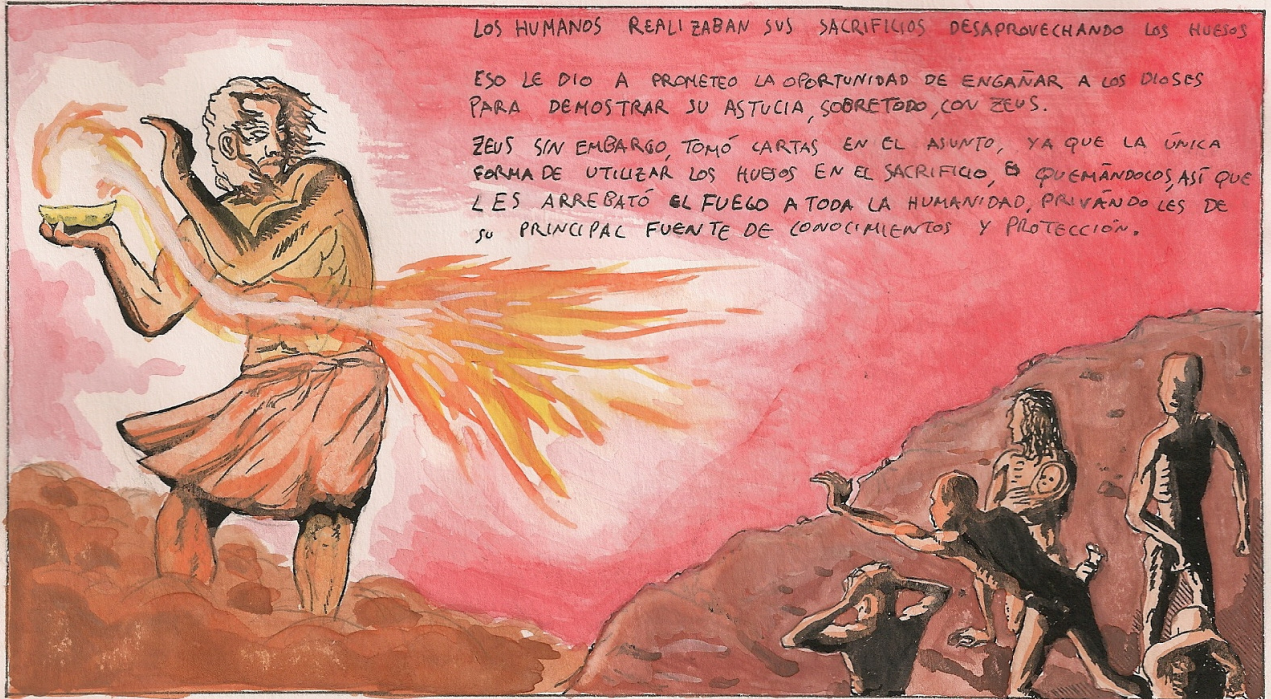 LOS HUMANOS REALIZABAN SUS SACRIFICIOS DESAPROVECHANDO LOS HUESOS
ESO LE DIO A PROMETEO LA OPORTUNIDAD DE ENGAÑAR A LOS DIOSES
PARA DEMOSTRAR SU ASTUCIA, SOBRETODO, CON ZEUS.
ZEUS SIN EMBARGO, TOMÓ CARTAS EN EL ASUNTO, YA QUE LA ÚNICA
FORMA DE UTILIZAR LOS HUESOS EN EL SACRIFICIO, QUEMÁNDOLOS, ASÍ QUE
LES ARREBATÓ EL FUEGO A TODA LA HUMANIDAD, PRIVÁNDOLES DE
SU PRINCIPAL FUENTE DE CONOCIMIENTOS Y PROTECCIÓN.